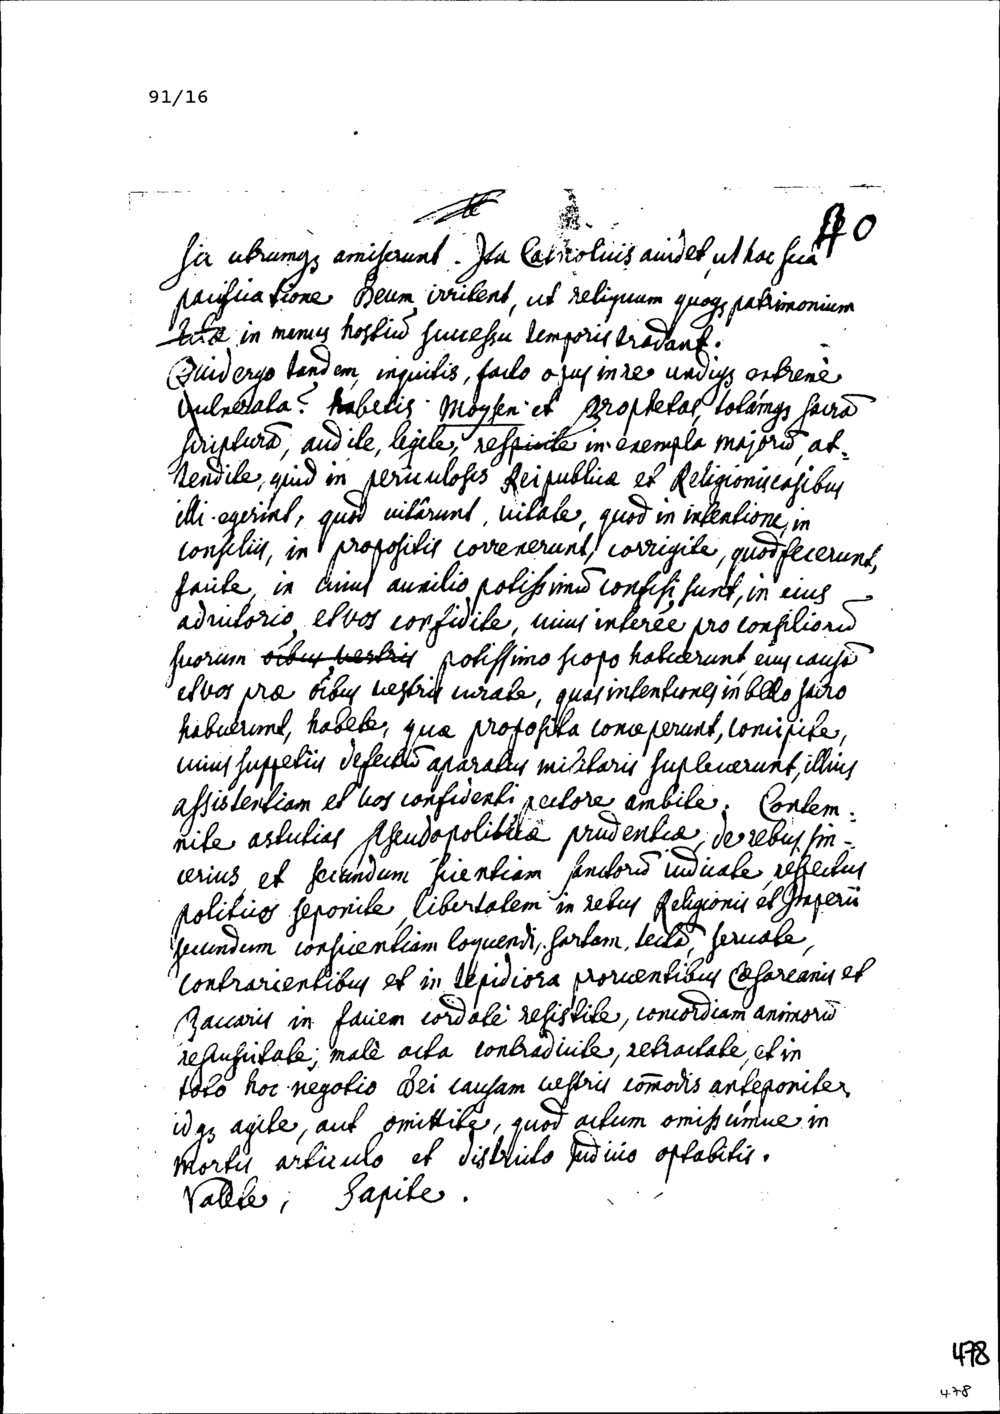 91/16
40
sic utrumqȝ amiserunt. Ita Catholicis avidet, ut hac sua
pacificatione Deum irritent, ut reliquum quoqȝ patrimonium
in manus hostiū successu temporis tradant.
Quid ergo tandem, inquitis, facto opus in re undiqȝ extreme
vulnerata? habetis Moysen et Prophetas, totamqȝ sacrā
scripturā, audite, legite, respicite in exempla majorū, at=
tendite, quid in periculosis Reipublicæ et Religionis casibus
illi egerint, quod vitârunt, vitate, quod in intentione, in
consiliis, in propositis correxerunt, corrigite, quod fecerunt,
facite, in cuius auxilio potissimū confisi sunt, in eius
adiutorio et vos confidite, cuius interee pro consiliorū
suorum oībus vestris potissimo scopo habuerunt, eius causā
et vos præ oībus vestris curate, quas intentiones in bello sacro
habuerunt, habete, quæ proposita conceperunt, concipite,
cuius suppetiis defectū aparatus militaris suplecerunt, illius
assistentiam et vos confidenti pectore ambite. Contem=
nite astutias pseudopoliticæ prudentiæ, de rebus sin=
cerius et secundum scientiam sanctorū iudicate, respectus
politicos seponite, libertatem in rebus Religionis et Imperii
secundum conscientiam loquendi, sartam, tectā, servate,
contrarientibus et in lepidiora proruentibus Cæsareanis et
Bavaris in faciem cordatè resistite, concordiam animorū
resuscitate, malè acta contradicite, retractate, et in
toto hoc negotio Dei causam vestris com̄odis anteponite,
idqȝ agite, aut omittite, quod actum omissumue in
mortis articulo et districto Judicio optabitis.
Valete, Sapite.
478
478